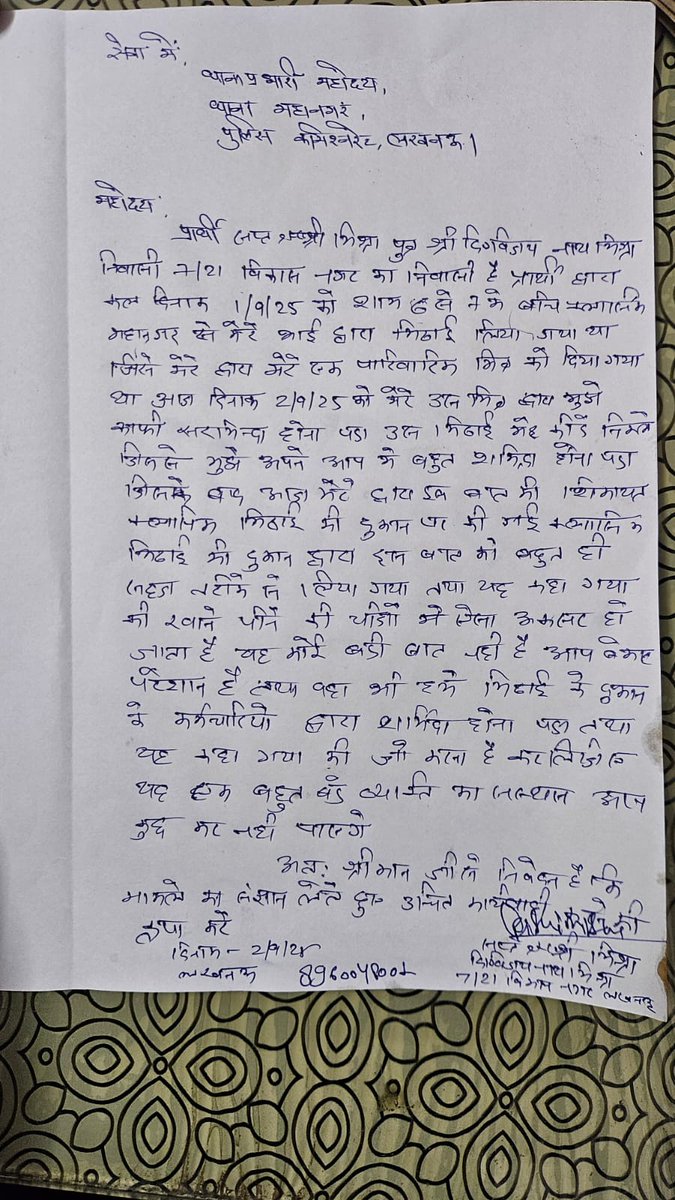 सेवा में,
थाना प्रभारी महोदय,
थाना महानगर,
पुलिस कमिश्नरेट, लखनऊ।
महोदय,
प्रार्थी सप्त ऋषी मिश्रा पुत्र श्री दिग्विजय नाथ मिश्रा
निवासी 7/21 विकास नगर का निवासी है प्रार्थी द्वारा
कल दिनांक 1/9/25 को शाम 6 से 7 के बीच
महानगर से मेरे भाई द्वारा मिठाई लिया गया था
जिसे मेरे द्वारा मेरे एक पारिवारिक मित्र को दिया गया
था आज दिनांक 2/9/25 को मेरे उस मित्र द्वारा मुझे
काफी सरमिन्दा होना पडा उस मिठाई मेंह कीडे निकले
जिससे मुझे अपने आप मे बहुत शर्मिंदा होना पडा
जिसके बाद आज मेरे द्वारा इस बात की शिकायत
मिठाई की दुकान पर की गई
मिठाई की दुकान द्वारा इस बात को बहुत ही
तरीके से लिया गया तथा यह कहा गया
की खाने पीने की चीजों मे ऐसा अकसर हो
जाता है यह कोई बडी बात नही है आप बेकार
परेशान है तथा वहा भी हमे मिठाई के दुकान
के कर्मचारियो द्वारा शर्मिंदा होना पडा तथा
यह कहा गया की जो करना है कर लिजीए
यह एक बहुत बडे व्यक्ति का संस्थान आप
कुछ कर नही पाएगे
अतः श्रीमान जी से निवेदन है कि
मामले का संज्ञान लेते हुए उचित कार्यवाही
कृपा करे
दिनांक - 2/9/25
सप्त ऋषी मिश्रा
दिग्विजय नाथ मिश्रा
लखनऊ
7/21 विकास नगर लखनऊ